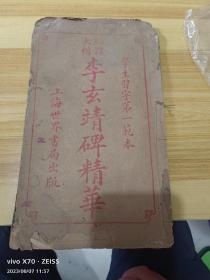 學生習字第一範本
大楷
李玄靖碑精華
上海世界書局出版
vivo X70 · ZEISS
2023/08/07 11:57